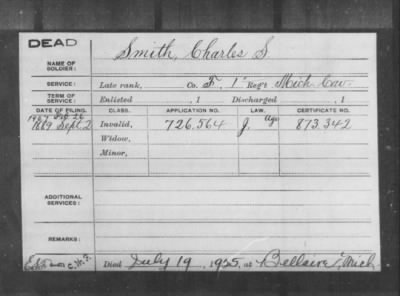 DEAD
NAME OF SOLDIER: Smith, Charles S.
SERVICE: Late rank, Co. F, 1" Reg't Mich Cav.
TERM OF SERVICE: Enlisted , 1 Discharged , 1
DATE OF FILING. CLASS. APPLICATION NO. LAW. CERTIFICATE NO.
1907 Feb 26 Age
1889 Sept. 2 Invalid, 726.564 J. 873.342
Widow,
Minor,
ADDITIONAL SERVICES:
REMARKS:
C.W.S. Died July 19, 1925, at Bellaire, Mich